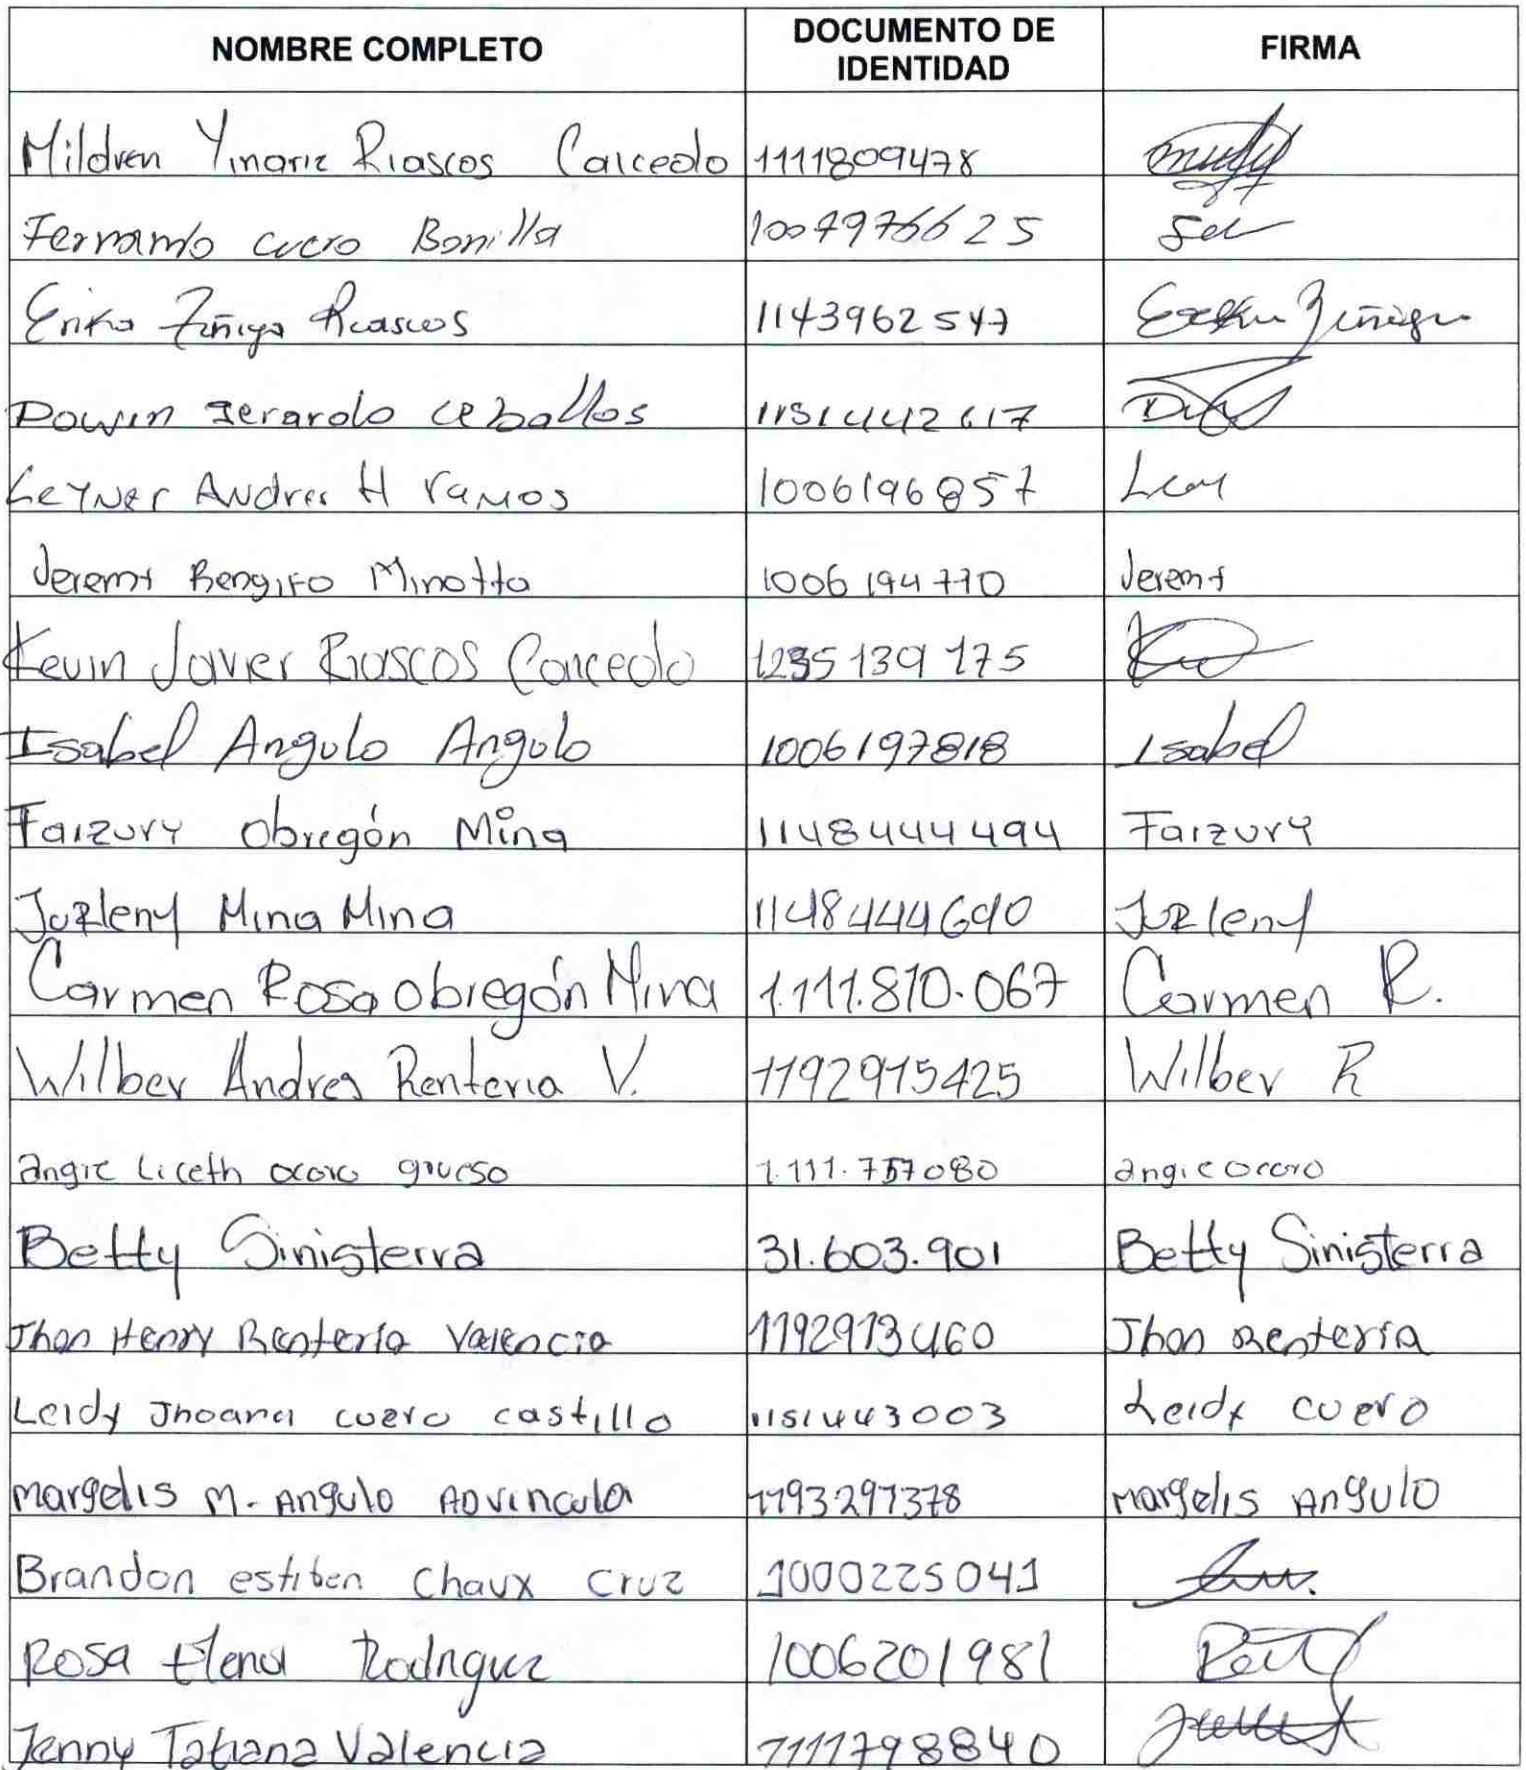 NOMBRE COMPLETO DOCUMENTO DE IDENTIDAD FIRMA
Mildren Yinariz Riascos Caicedo 1111809478
Fernando cuero Bonilla 10079766625
Erika Zuñiga Riascos 1143962547 Erika Zuñiga
Dowin Jerardo ceballos 1151442617
Leyner Andres H ramos 1006196857
Jeremy Rengifo Minotta 1006194770 Jeremy
Kevin Javier Riascos Caicedo 1235139175
Isabel Angulo Angulo 1006197818 Isabel
Faizury Obregón Mina 1148444494 Faizury
Juzleny Mina Mina 1148444690 Juzleny
Carmen Rosa Obregón Mina 1.111.810.067 Carmen R.
Wilber Andres Renteria V. 1192915425 Wilber R
angie Liceth ocoro grueso 1.111.757080 angie ocoro
Betty Sinisterra 31.603.901 Betty Sinisterra
Jhon Henry Rentería Valencia 1192913460 Jhon Rentería
Leidy Jhoana cuero castillo 1151443003 Leidy cuero
Margelis M. Angulo Advincula 1193297378 Margelis Angulo
Brandon estiben Chaux Cruz 1000225041
Rosa Elena Rodriguez 1006201981
Jenny Tatiana Valencia 1111798840